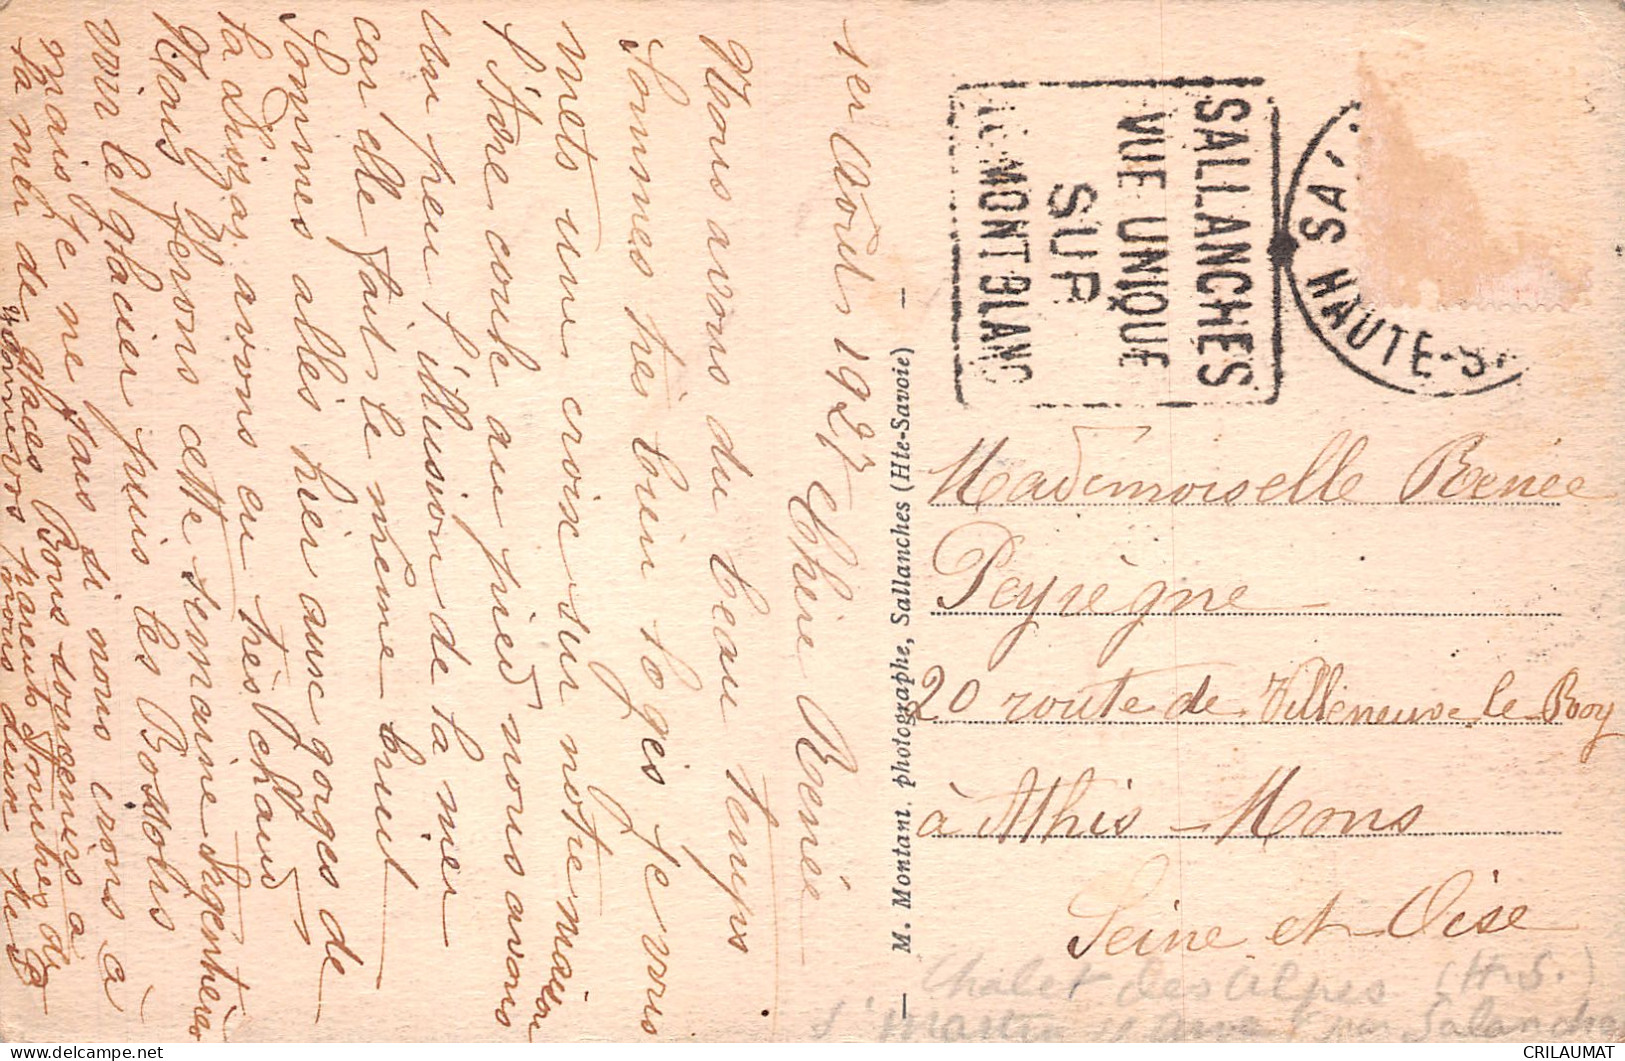 1er Août 1927 Chère Renée
Nous avons du beau temps
Sommes très bien logés je vous
mets une croix sur notre maison
l'Arve coule au pied nous avons
un peu l'illusion de la mer
car elle fait le même bruit
Sommes allés hier aux gorges de
la Diozas avons eu très chaud
Nous ferons cette semaine Argentières
voir le glacier puis les Bossons
mais je ne sais si nous irons à
la mer de glaces Bons souvenirs à
vos parents
nous deux
M. Montant, photographe, Sallanches (Hte-Savoie)
SALLANCHES
VUE UNIQUE
SUR
LE MONT BLANC
HAUTE-S
Mademoiselle Renée
Peyrègne
20 route de Villeneuve le Roy
à Athis-Mons
Seine et Oise
Chalet des Alpes (H.S.)
St Martin s/ Arve par Salanche
CRILAUMAT